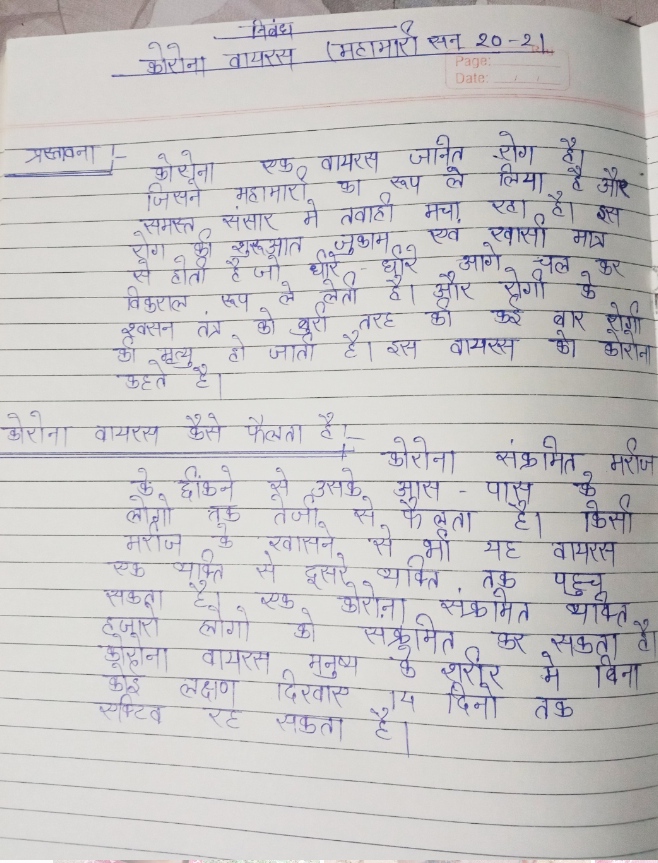 निबंध
कोरोना वायरस (महामारी सन 20-21
Page:
Date:
प्रस्तावना :-
कोरोना एक वायरस जनित रोग है।
जिसने महामारी का रूप ले लिया है और
समस्त संसार मे तवाही मचा रहा है। इस
रोग की शुरूआत जुकाम एवं खासी मात्र
से होती है जो धीरे-धीरे आगे चल कर
विकराल रूप ले लेती है। और रोगी के
श्वसन तंत्र को बुरी तरह की कई बार रोगी
की मृत्यु हो जाती है। इस वायरस को कोरोना
कहते है।
कोरोना वायरस कैसे फैलता है।-
कोरोना संक्रमित मरीज
के छींकने से उसके आस-पास के
लोगो तक तेजी से फैलता है। किसी
मरीज के खासने से भी यह वायरस
एक व्यक्ति से दूसरे व्यक्ति तक पहुच
सकता है। एक कोरोना संक्रमित व्यक्ति
हजारो लोगो को संक्रमित कर सकता है।
कोरोना वायरस मनुष्य के शरीर मे बिना
कोई लक्षण दिखाए 14 दिनो तक
एक्टिव रह सकता है।